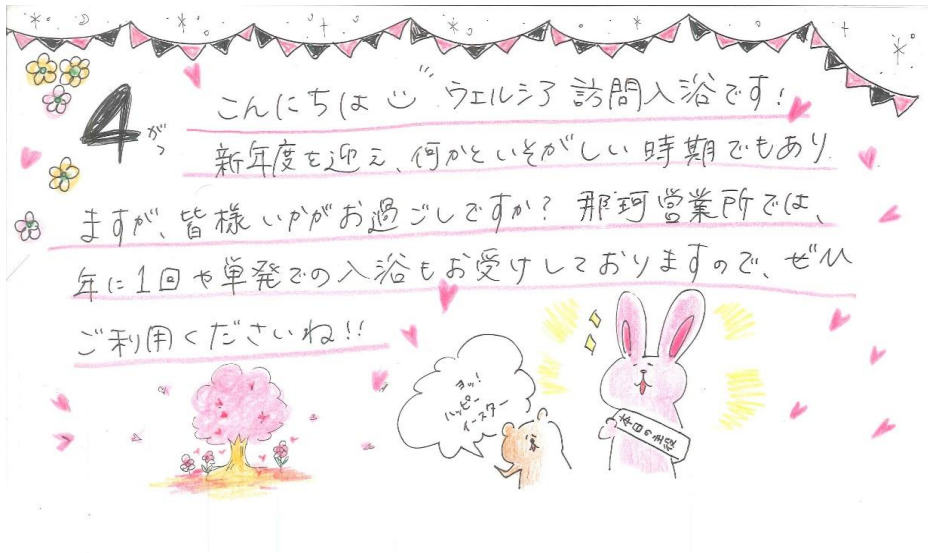 4がつ
こんにちは ウエルシア訪問入浴です!
新年度を迎え、何かといそがしい時期でもあり
ますが、皆様いかがお過ごしですか? 那珂営業所では、
年に1回や単発での入浴もお受けしておりますので、ぜひ
ご利用くださいね!!
ヨッ!
ハッピー
イースター
本日の主役